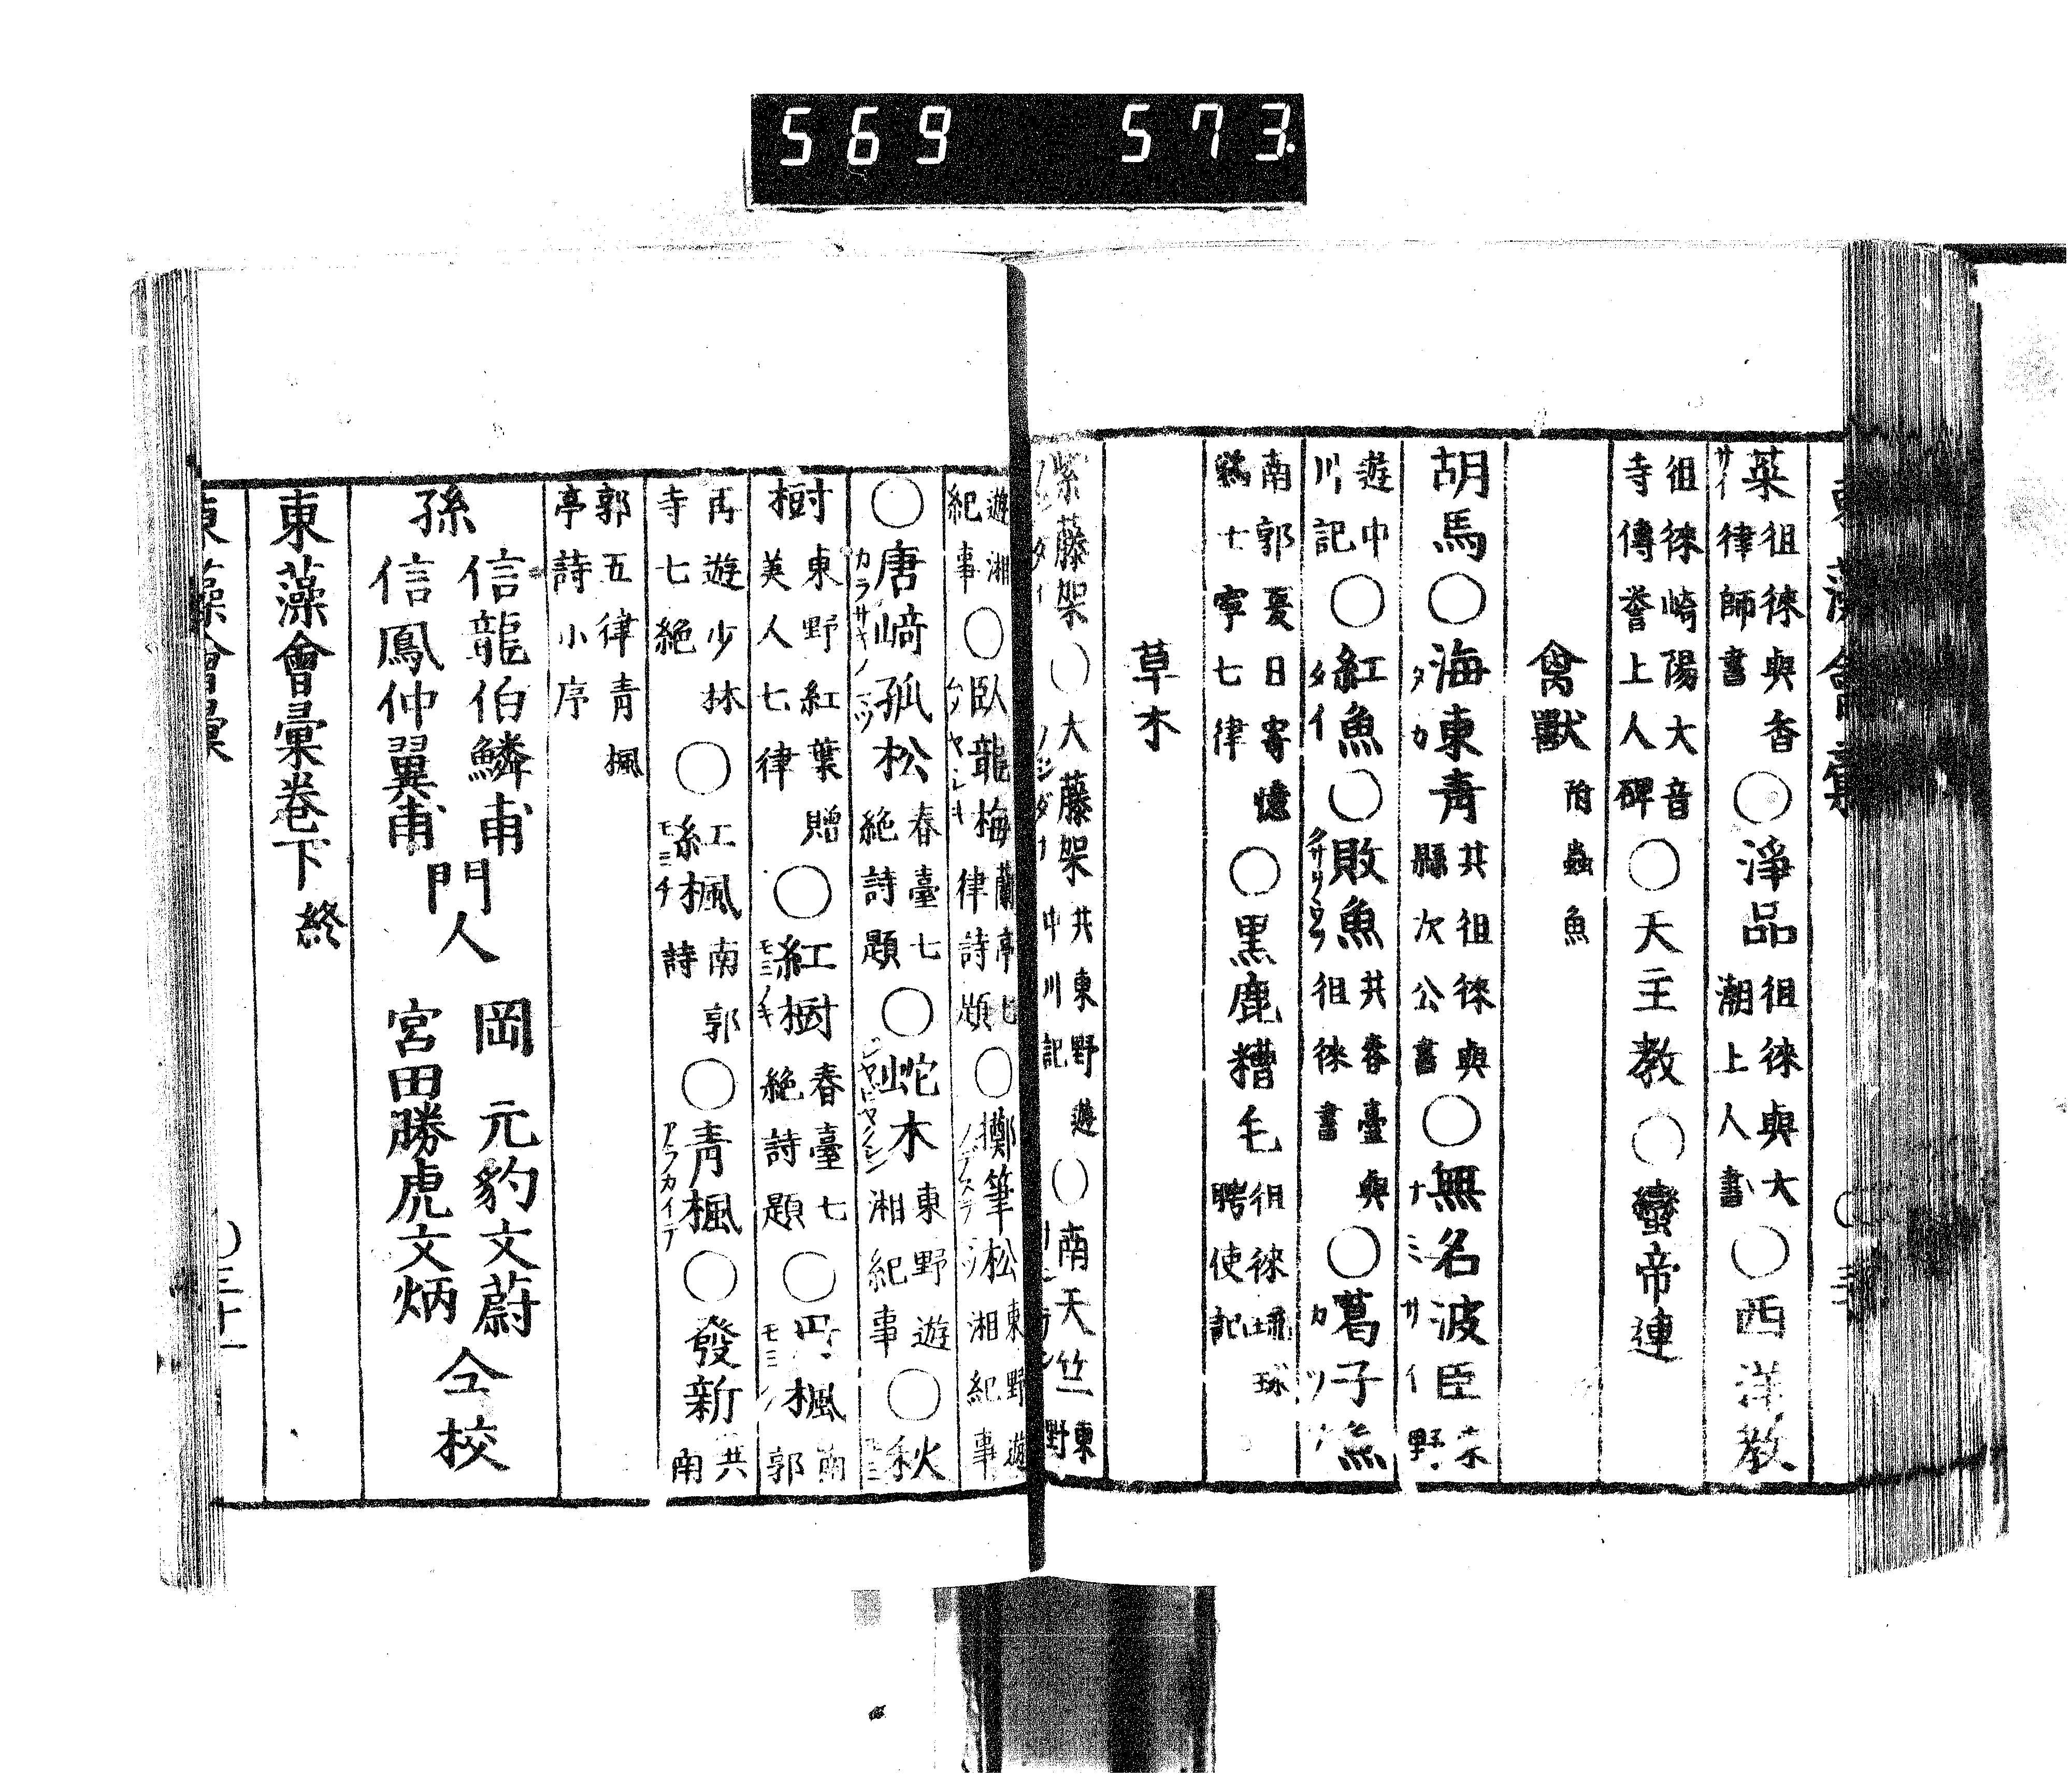 569 573.
菜 徂徠與香律師書 ○淨品 徂徠與大潮上人書 ○西洋教
徂徠崎陽大音寺傳譽上人碑 ○天主教○蠻帝連
禽獸 附蟲魚
胡馬○海東青 タカ 共徂徠與縣次公書 ○無名波臣 ナミサイ
遊中川記 ○紅魚 タイ ○敗魚 共春臺與徂徠書 ○葛子魚 カツ
南郭夏日寄憶 七律 ○黒鹿糟毛 徂徠琉球聘使記
草木
紫藤架○大藤架 共東野遊中川記 ○南天竺
遊湘紀事 ○臥龍梅 蘭亭七律詩題 ○擲筆松 東野遊湘紀事
○唐﨑孤松 カラサキノ 春臺七絶詩題 ○蛇木 東野遊湘紀事 ○秋
樹 東野紅葉贈美人七律 ○紅樹 モミノキ 春臺七絶詩題 ○楓 南郭
再遊少林寺七絶 ○紅楓 モミチ 南郭詩 ○青楓 アヲカイテ ○發新 共南
郭五律青楓亭詩小序
孫 信龍伯鱗甫 信鳳仲翼甫 門人 岡元豹文蔚 宮田勝虎文炳 仝校
東藻會彙卷下 終
東藻會彙 ○三十一